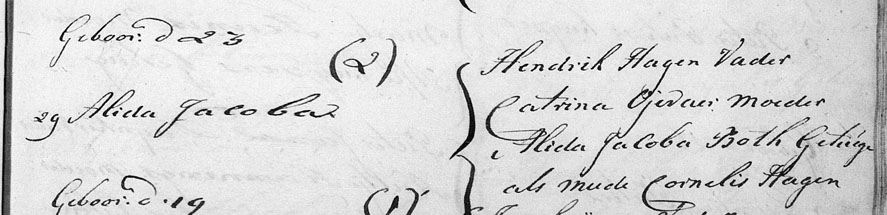 Geboor: d 23
(2)
29 Alida Jacoba
Hendrik Hagen Vader
Catrina Ojevaer Moeder
Alida Jacoba Both Getüige
als mede Cornelis Hagen
Geboor: d. 19
(1)